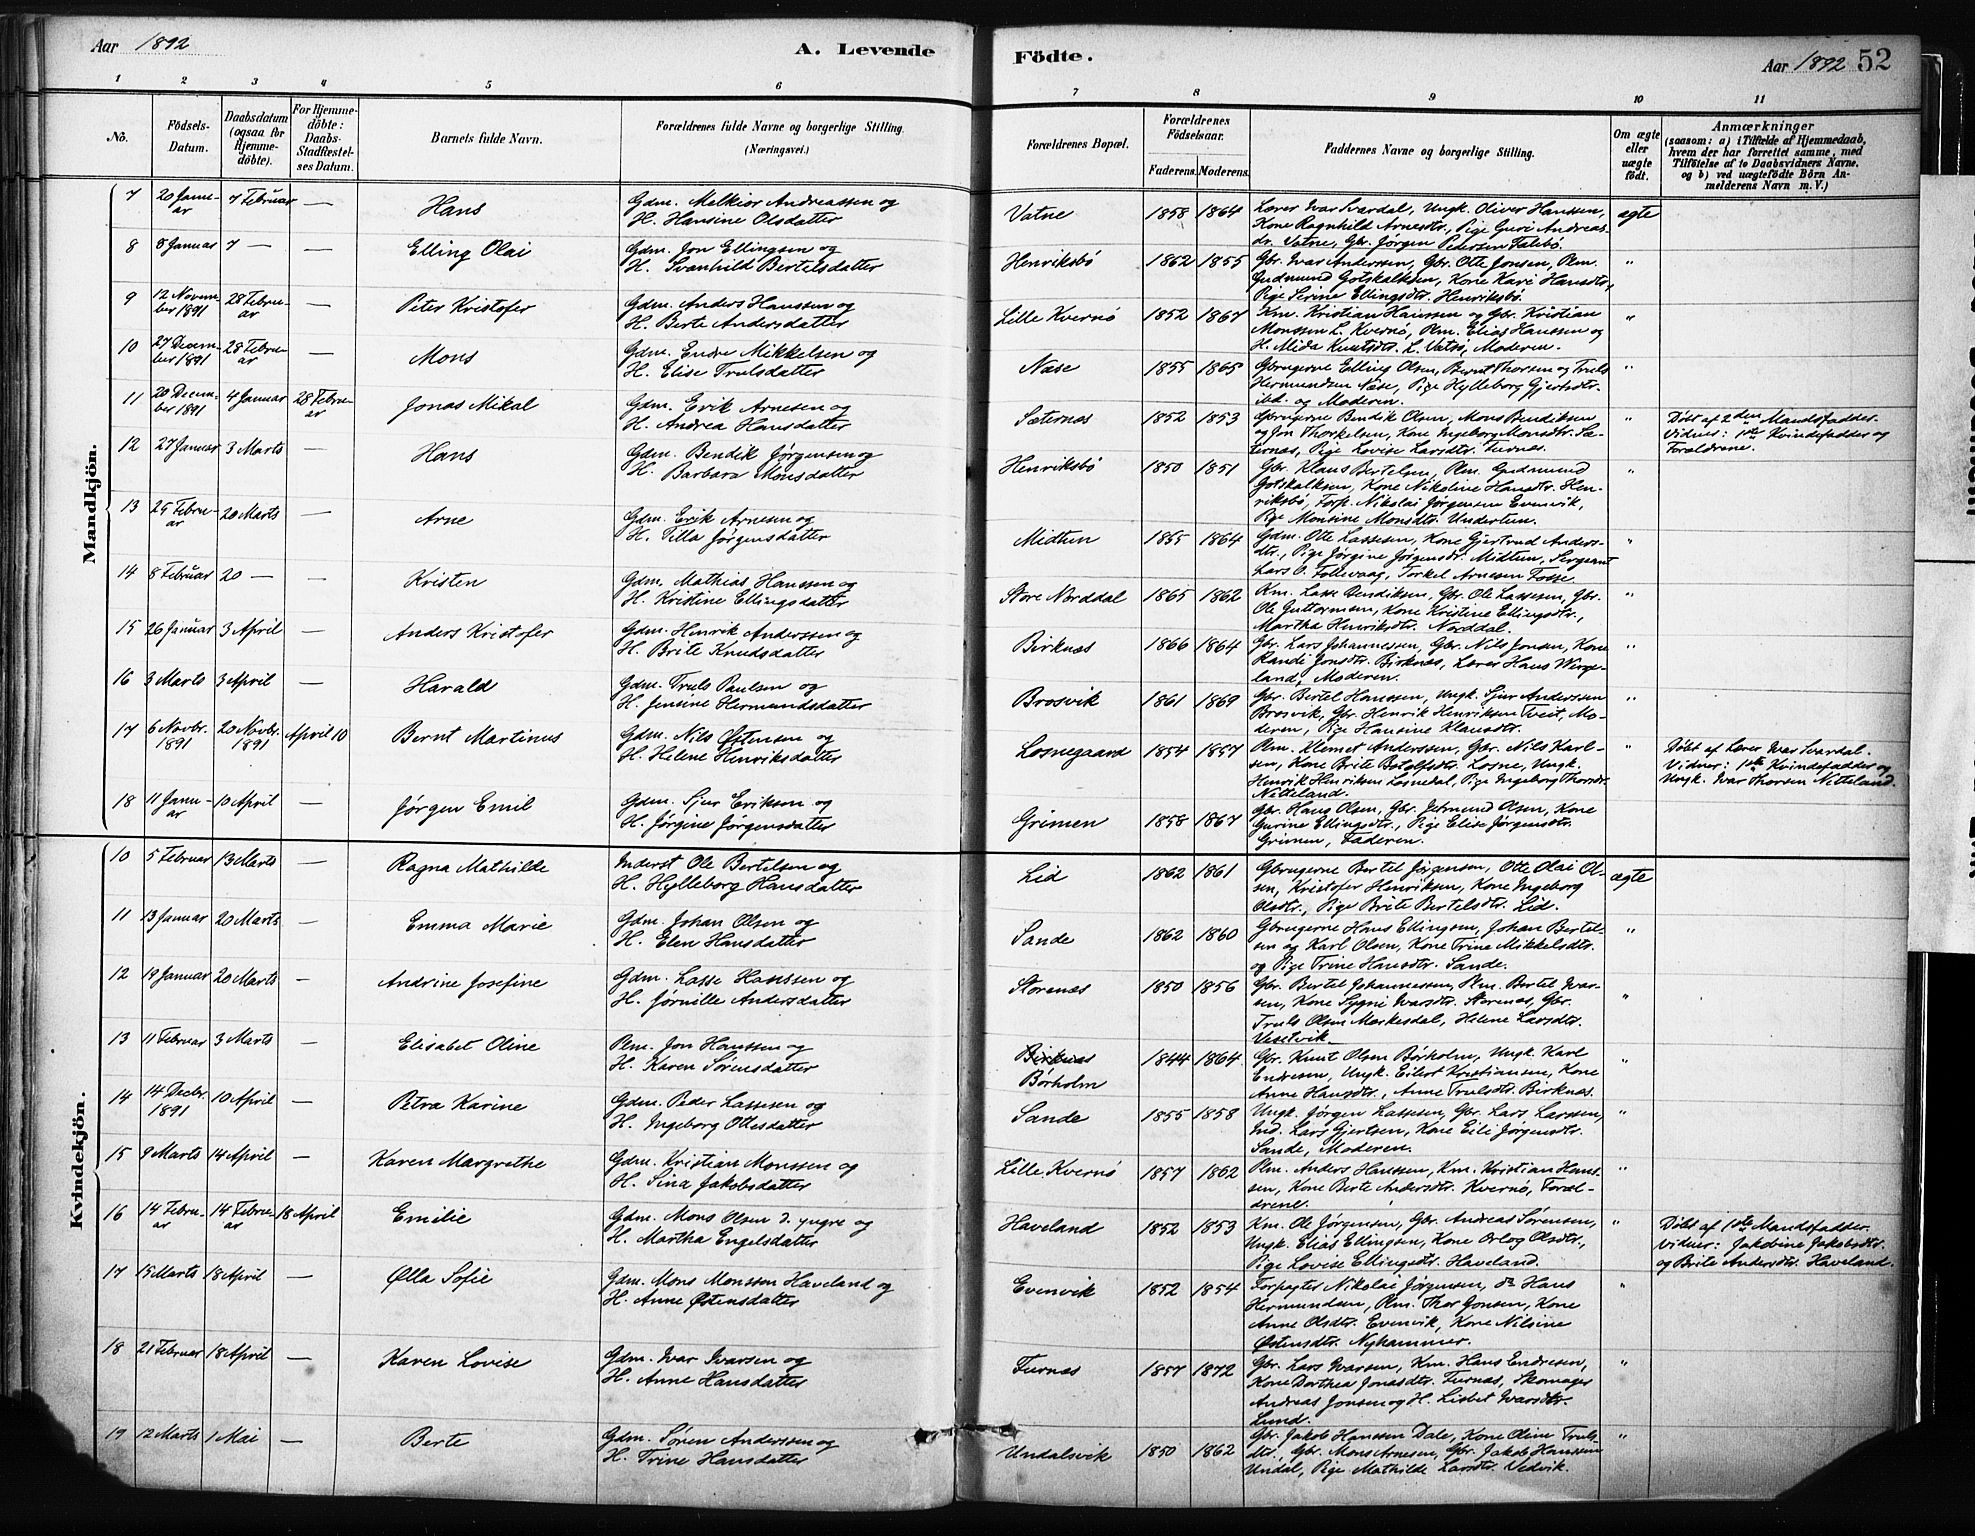 Aar 1892
A. Levende
Födte.
Aar 1892 52
1 2 3 4 5 6 7 8 9 10 11
No.
Födsels-Datum.
Daabsdatum (ogsaa for Hjemmedöbte).
For Hjemmedöbte: Daabs-Stadfæstelses Datum.
Barnets fulde Navn.
Forældrenes fulde Navne og borgerlige Stilling. (Næringsvei.)
Forældrenes Bopæl.
Forældrenes Födselsaar.
Faderens. Moderens.
Faddernes Navne og borgerlige Stilling.
Om ægte eller uægte födt.
Anmærkninger
(saasom: a) i Tilfælde af Hjemmedaab, hvem der har forrettet samme, med Tilföielse af to Daabsvidners Navne, og b) ved uægtefödte Börn Anmelderens Navn m. V.)
Mandkjön.
7 20 Januar 7 Februar — Hans Gdm. Melkior Andreassen og H. Hansine Olsdatter Vatne 1858 1864 Lærer Ivar Svardal, Ungk. Oliver Hanssen, Kone Ragnhild Arnesdtr., Pige Guri Andreasdr. Vatne, Gbr. Jörgen Pedersen ægte
8 8 Januar 7 — — Elling Olai Gdm. Jon Ellingsen og H. Svanhild Bertelsdatter Henriksbö 1862 1855 Gbr. Ivar Anderssen, Gbr. Otte Jonsen, Plm. Gudmund Gotskalksen, Kone Kari Hansdtr., Pige Serine Ellingsdtr. Henriksbö. "
9 12 November 1891 28 Februar — Peter Kristofer Gdm. Anders Hanssen og H. Berte Andersdatter Lille Kvernö 1852 1867 Km. Kristian Hanssen og Gbr. Kristian Monssen L. Kvernö, Plm. Elias Hanssen og H. Mida Knutsdtr. L. Vatsö, Moderen. "
10 27 December 1891 28 Februar — Mons Gdm. Endre Mikkelsen og H. Elise Trulsdatter Næse 1855 1865 Gbrugerne Elling Olsen, Bernt Thorsen og Truls Hermundsen Näse, Pige Hylleborg Gjertsdtr. ibd. og Moderen. "
11 20 December 1891 4 Januar 28 Februar Jonas Mikal Gdm. Erik Arnesen og H. Andrea Hansdatter Sæternæs 1852 1853 Gbrugerne Bendik Olsen, Mons Bendiksen og Jon Thorkelsen, Kone Ingeborg Monsdtr. Sæternæs, Pige Lovise Larsdtr. Furnæs. " Döbt af 2den Mandsfadder. Vidner: 1ste Kvindefadder og Forældrene.
12 27 Januar 3 Marts — Hans Gdm. Bendik Jörgensen og H. Barbara Monsdatter Henriksbö 1850 1851 Gbr. Klaus Bertelsen, Plm. Gudmund Gotskalksen, Kone Nikoline Hansdtr. Henriksbö, Forp. Nikolai Jörgensen Evenvik, Pge Monsine Monsdtr. Undertun. "
13 25 Februar 20 Marts — Arne Gdm. Erik Arnesen og H. Titta Jörgensdatter Midtun 1855 1864 Gdm. Otte Lassesen, Kone Gjertrud Andersdtr., Pige Jörgine Jörgensdr. Midtun, Sergeant Lars O. Tollevaag, Torkel Arnesen Fosse "
14 8 Februar 20 — — Kristen Gdm. Mathias Hanssen og H. Kristine Ellingsdatter Store Norddal 1865 1862 Km. Lasse Bendiksen, Gbr. Ole Lassesen, Gbr. Ole Guttormsen, Kone Kristine Ellingsdtr., Martha Henriksdtr. Norddal. "
15 26 Januar 3 April — Anders Kristofer Gdm. Henrik Anderssen og H. Brite Knudsdatter Birknæs 1866 1864 Gbr. Lars Johannessen, Gbr. Nils Jonsen, Kone Randi Jonsdtr. Birknæs, Lærer Hans Wergeland, Moderen. "
16 3 Marts 3 April — Harald Gdm. Truls Paulsen og H. Jensine Hermundsdatter Brosvik 1861 1869 Gbr. Bertel Hanssen, Ungk. Sjur Anderssen Brosvik, Gbr. Henrik Henriksen Tveit, Moderen, Pige Hansine Klausdtr. "
17 6 Novbr. 1891 20 Novbr. 1891 April 10 Bernt Martinus Gdm. Nils Östensen og H. Helene Henriksdatter Losnegaard 1854 1857 Plm. Klemet Anderssen, Gbr. Nils Karlsen, Kone Brite Botolfsdtr. Losne, Ungk. Henrik Henriksen Losnedal, Pige Ingeborg Thorsdr. Nitteland. " Döbt af Lærer Ivar Svardal. Vidner: 1ste Kvindefadder og Ungk. Ivar Thorsen Nitteland.
18 11 Januar 10 April — Jörgen Emil Gdm. Sjur Erikson og H. Jörgine Jörgensdatter Grimen 1858 1867 Gbr. Hans Olsen, Gbr. Jetmund Olsen, Kone Gurine Ellingsdtr., Pige Elise Jörgensdtr. Grimen, Faderen.
Kvindekjön.
10 5 Februar 13 Marts — Ragna Mathilde Inderst Ole Bertelsen og H. Hylleborg Hansdatter Lid 1862 1861 Gbrugerne Bertel Jörgensen, Otte Olai Olsen, Kristofer Henriksen, Kone Ingeborg Olsdtr., Pige Brite Bertelsdtr. Lid. ægte
11 13 Januar 20 Marts — Emma Marie Gdm. Johan Olsen og H. Elen Hansdatter Sande 1862 1860 Gbrugerne Hans Ellingsen, Johan Bertelsen og Karl Olsen, Kone Trine Mikkelsdtr. og Pige Trine Hansdtr. Sande. "
12 19 Januar 20 Marts — Andrine Josefine Gdm. Lasse Hanssen og H. Jörnille Andersdatter Storenæs 1850 1856 Gbr. Bertel Johannessen, Plm. Bertel Ivarsen, Kone Sygni Ivarsdtr. Storenæs, Gbr. Truls Olsen Mærkesdal, Helene Larsdtr. "
13 11 Februar 3 Marts — Elisabet Oline Plm. Jon Hanssen og H. Karen Sörensdatter Birknæs Börholm 1844 1864 Gbr. Knut Olsen Börholm, Ungk. Karl Endresen, Ungk. Eilert Kristiansen, Kone Anne Hansdtr., Anne Trulsdtr. Birknæs. "
14 14 Decbr. 1891 10 April — Petra Karine Gdm. Peder Lassesen og H. Ingeborg Ottesdatter Sande 1855 1858 Ungk. Jörgen Lassesen, Gbr. Lars Larssen, Ind. Lars Gjertsen, Kone Eili Jörgensdtr. Sande, Moderen. "
15 9 Marts 14 April — Karen Margrethe Gdm. Kristian Monssen og H. Sina Jakobsdatter Lille Kvernö 1857 1862 Plm. Anders Hanssen, Km. Kristian Hanssen, Kone Berte Andersdtr. Kvernö, Forældrene. "
16 14 Februar 14 Februar 18 April Emilie Gdm. Mons Olsen d. yngre og H. Martha Engelsdatter Haveland 1852 1853 Km. Ole Jörgensen, Gbr. Andreas Sörensen, Ungk. Elias Ellingsen, Kone Orlog Olsdtr., Pige Lovise Ellingsdtr. Haveland. " Döbt af 1ste Mandsfadder. Vidner: Jakobine Jakobsdtr. og Brite Andersdtr. Haveland.
17 15 Marts 18 April — Ölla Sofie Gdm. Mons Monssen Haveland og H. Anne Östensdatter Evenvik 1852 1854 Forpagter Nikolai Jörgensen, do Hans Hermundsen, Plm. Thor Jonsen, Kone Anne Olsdtr. Evenvik, Kone Nilsine Östensdtr. Nyhammer. "
18 21 Februar 18 April — Karen Lovise Gdm. Ivar Ivarsen og H. Anne Hansdatter Furnæs 1857 1872 Gbr. Lars Ivarsen, Km. Hans Endresen, Kone Dorthea Jonasdtr. Furnæs, Skomager Andreas Jonsen og H. Lisbet Ivarsdtr. Lund. "
19 12 Marts 1 Mai — Berte Gdm. Sören Anderssen og H. Trine Hansdatter Undalsvik 1850 1862 Gbr. Jakob Hanssen Dale, Kone Oline Trulsdtr., Gbr. Mons Arnesen, Gbr. Jakob Hanssen Undal, Pige Mathilde Larsdtr. Vedvik. "